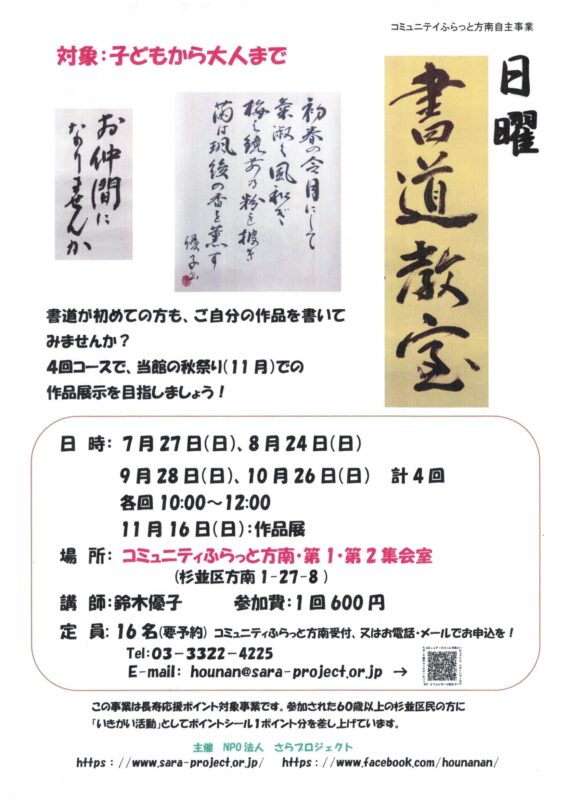 コミュニテイふらっと方南自主事業
対象：子どもから大人まで
日曜
書道教室
初春の令月にして
氣淑く風和ぎ
梅は鏡前の粉を披き
蘭は珮後の香を薫す
優子書
お仲間に
なりませんか
書道が初めての方も、ご自分の作品を書いて
みませんか？
4回コースで、当館の秋祭り(11月)での
作品展示を目指しましょう！
日 時： 7月27日(日)、8月24日(日)
9月28日(日)、10月26日(日) 計4回
各回10:00～12:00
11月16日(日)：作品展
場 所： コミュニティふらっと方南・第1・第2集会室
(杉並区方南1-27-8)
講 師：鈴木優子 参加費：1回600円
定 員：16名(要予約) コミュニティふらっと方南受付、又はお電話・メールでお申込を！
Tel：03-3322-4225
E-mail: hounan@sara-project.or.jp →
この事業は長寿応援ポイント対象事業です。参加された60歳以上の杉並区民の方に
「いきがい活動」としてポイントシール1ポイント分を差し上げています。
主催 NPO法人 さらプロジェクト
https://www.sara-project.or.jp/ https://www.facebook.com/hounanan/